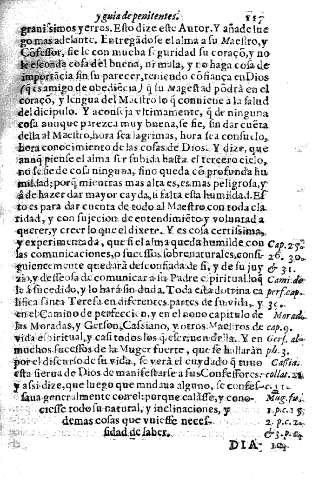 y guia de penitentes. 157
grauissimos yerros. Esto dize este Autor. Y añade lue
go mas adelante. Entregãdose el alma a su Maestro, y
Cõfessor, fiele con mucha seguridad su coraçõ, y no
le esconda cosa del buena, ni mala, y no haga cosa de
importãcia sin su parecer, teniendo cõfiança en Dios
(q̃ es amigo de obediẽcia) q̃ su Magestad põdrà en el
coraçõ, y lengua del Maestro lo q̃ conuiene a la salud
del dicipulo. Y aconseja vltimamente, q̃ de ninguna
cosa aunque parezca muy buena, se fie, sin dar cuẽta
della al Maestro, hora sea lagrimas, hora sea consuelo,
hora conocimiento de las cosas de Dios. Y dize, que
aunq̃ piense el alma ser subida hasta el tercero cielo,
no se fie de cosa ninguna, sino queda cõ profunda hu
mildad: porq̃ mientras mas alta es, es mas peligrosa, y
à de hazer dar mayor cayda, si falta esta humildad. Es
to es para dar cuenta de todo al Maestro con toda cla
ridad, y con sujecion de entendimiẽto y voluntad a
querer, y creer lo que el dixere. Y es cosa certissima,
y experimentada, que si el alma queda humilde con Cap. 25.
las comunicaciones, o sucessos sobrenaturales, consi- 26. 30.
guientemente quedarà desconfiada de si, y de su juy & 31.
zio, y desseosa de comunicar a su Padre espiritual lo q̃ Cami. de
le à sucedido, y lo harà sin duda. Toda esta dotrina ca perf. cap.
lifica santa Teresa en diferentes partes de su vida, y 3
en el Camino de perfeccion, y en el nono capitulo de Morada
las Moradas, y Gerson, Cassiano, y otros Maestros de cap. 9.
vida espiritual, y casi todos los que escriuen della. Y en Gers. al
muchos sucessos de la Muger fuerte, que se hallaràn ph. 3.
por el discurso de su vida, se verà el cuydado q̃ tuuo Cassia.
esta sierua de Dios de manifestarse a sus Confessores: collat.
y assi dize, que luego que mudaua alguno, se confes-
saua generalmente con el: porque calasse, y cono- Mug. fu.
ciesse todo su natural, y inclinaciones, y 1. p. c. 18
demas cosas que vuiesse neces- 2. p. c.
sidad de saber. & 3. p.
DIA-